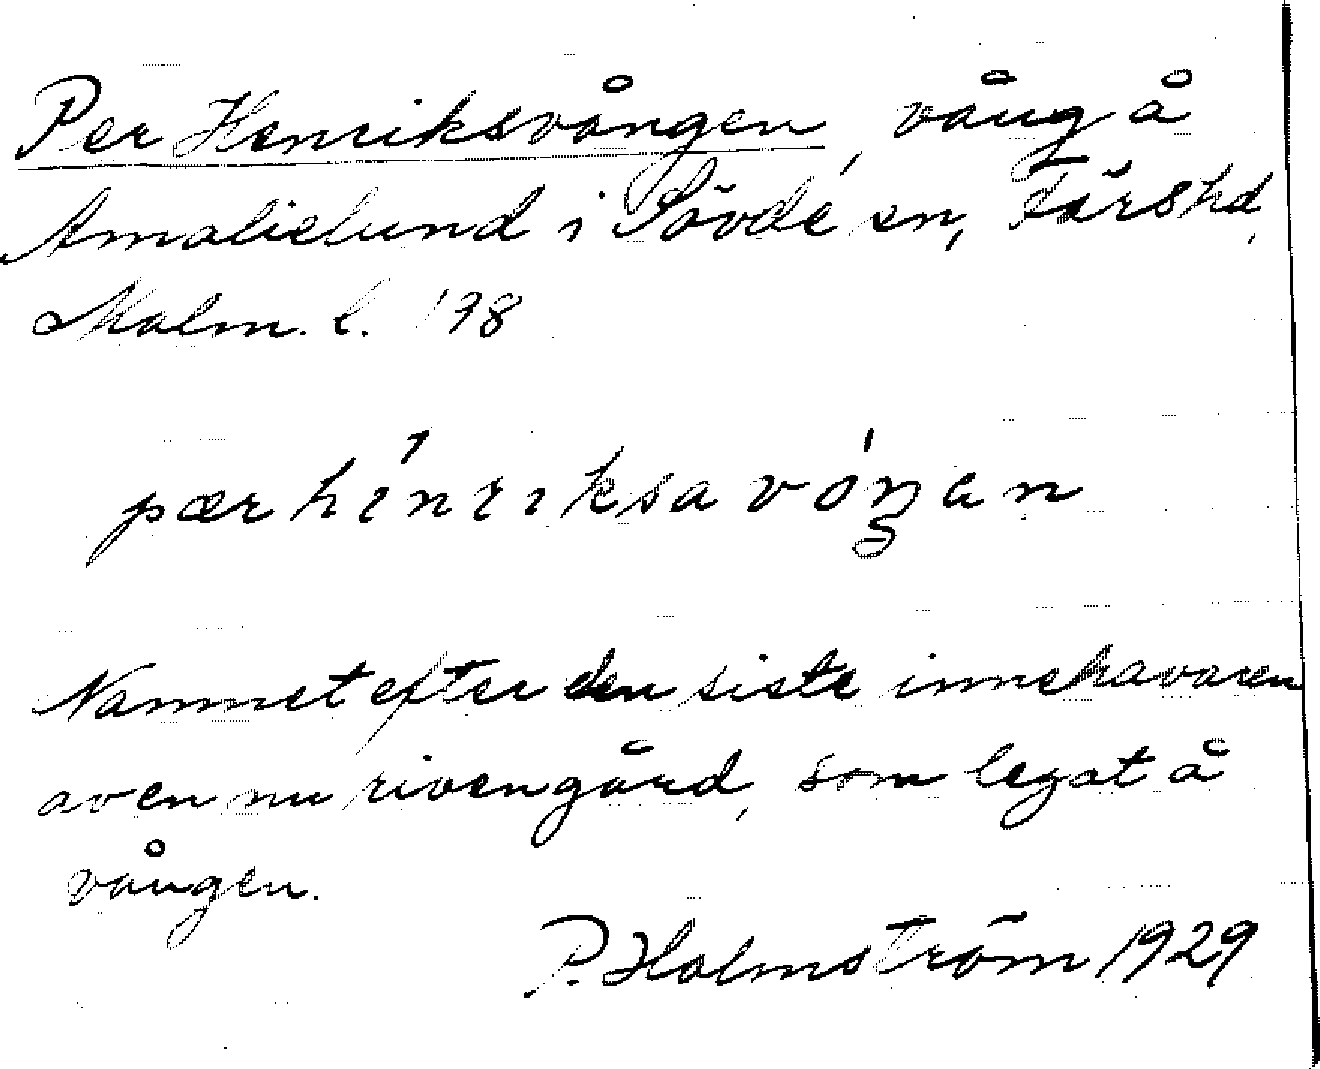 Per Henriksvången, vång å
Amalielund i Sövde sn, Färs hd,
Malm. l. '78
pær hínriksa vóŋan
Namnet efter den siste innehavaren
av en nu riven gård, som legat å
vången.
P. Holmström 1929